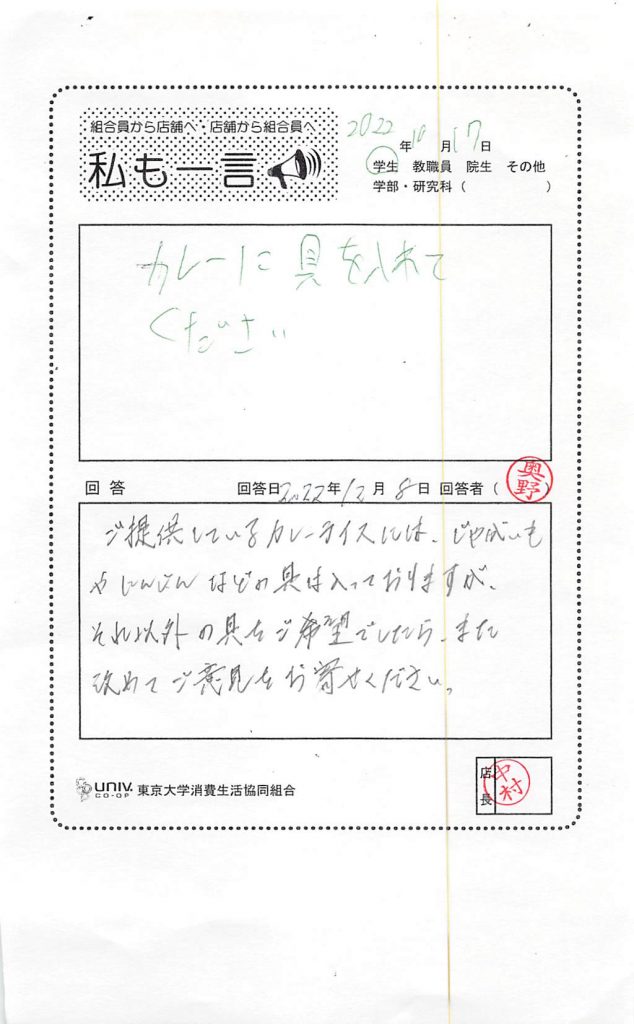 組合員から店舗へ・店舗から組合員へ
私も一言
2022年10月17日
学生 教職員 院生 その他
学部・研究科（ ）
カレーに具を入れて
ください
回答 回答日2022年12月8日 回答者（奥野）
ご提供しているカレーライスには、じゃがいも
やにんじんなどの具は入っておりますが、
それ以外の具をご希望でしたら、また
改めてご意見をお寄せください。
UNIV. CO-OP 東京大学消費生活協同組合
店長 中村